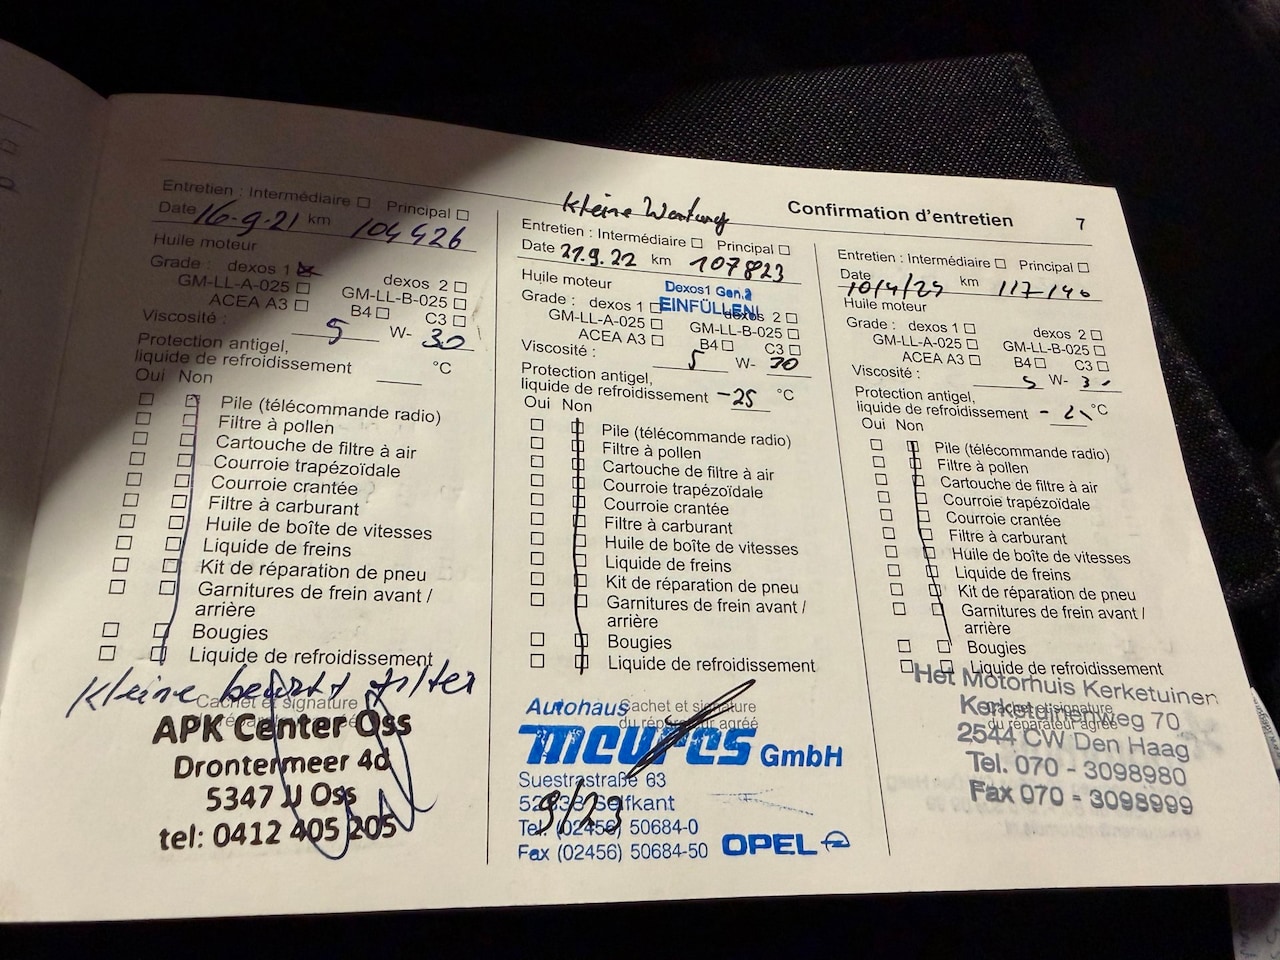 Confirmation d'entretien 7
Entretien : Intermédiaire Principal
Date 16-9-21 km 104426
Huile moteur
Grade : dexos 1 dexos 2
GM-LL-A-025 GM-LL-B-025
ACEA A3 B4 C3
Viscosité : 5 W- 30
Protection antigel,
liquide de refroidissement °C
Oui Non
Pile (télécommande radio)
Filtre à pollen
Cartouche de filtre à air
Courroie trapézoïdale
Courroie crantée
Filtre à carburant
Huile de boîte de vitesses
Liquide de freins
Kit de réparation de pneu
Garnitures de frein avant /
arrière
Bougies
Liquide de refroidissement
Kleine beurt filter
Cachet et signature
APK Center Oss
Drontermeer 4d
5347 JJ Oss
tel: 0412 405 205
Kleine Wartung
Entretien : Intermédiaire Principal
Date 21.9.22 km 107823
Huile moteur
Dexos1 Gen.2
EINFÜLLEN!
Grade : dexos 1 dexos 2
GM-LL-A-025 GM-LL-B-025
ACEA A3 B4 C3
Viscosité : 5 W- 30
Protection antigel,
liquide de refroidissement -25 °C
Oui Non
Pile (télécommande radio)
Filtre à pollen
Cartouche de filtre à air
Courroie trapézoïdale
Courroie crantée
Filtre à carburant
Huile de boîte de vitesses
Liquide de freins
Kit de réparation de pneu
Garnitures de frein avant /
arrière
Bougies
Liquide de refroidissement
Cachet et signature
du réparateur agréé
Autohaus
Meures GmbH
Suestrastraße 63
52538 Selfkant
9/23
Tel. (02456) 50684-0
Fax (02456) 50684-50 OPEL
Entretien : Intermédiaire Principal
Date 10/4/24 km 117146
Huile moteur
Grade : dexos 1 dexos 2
GM-LL-A-025 GM-LL-B-025
ACEA A3 B4 C3
Viscosité : 5 W- 30
Protection antigel,
liquide de refroidissement °C
Oui Non
Pile (télécommande radio)
Filtre à pollen
Cartouche de filtre à air
Courroie trapézoïdale
Courroie crantée
Filtre à carburant
Huile de boîte de vitesses
Liquide de freins
Kit de réparation de pneu
Garnitures de frein avant /
arrière
Bougies
Liquide de refroidissement
Cachet et signature
du réparateur agréé
Het Motorhuis Kerketuinen
Kerketuinenweg 70
2544 CW Den Haag
Tel. 070 - 3098980
Fax 070 - 3098999